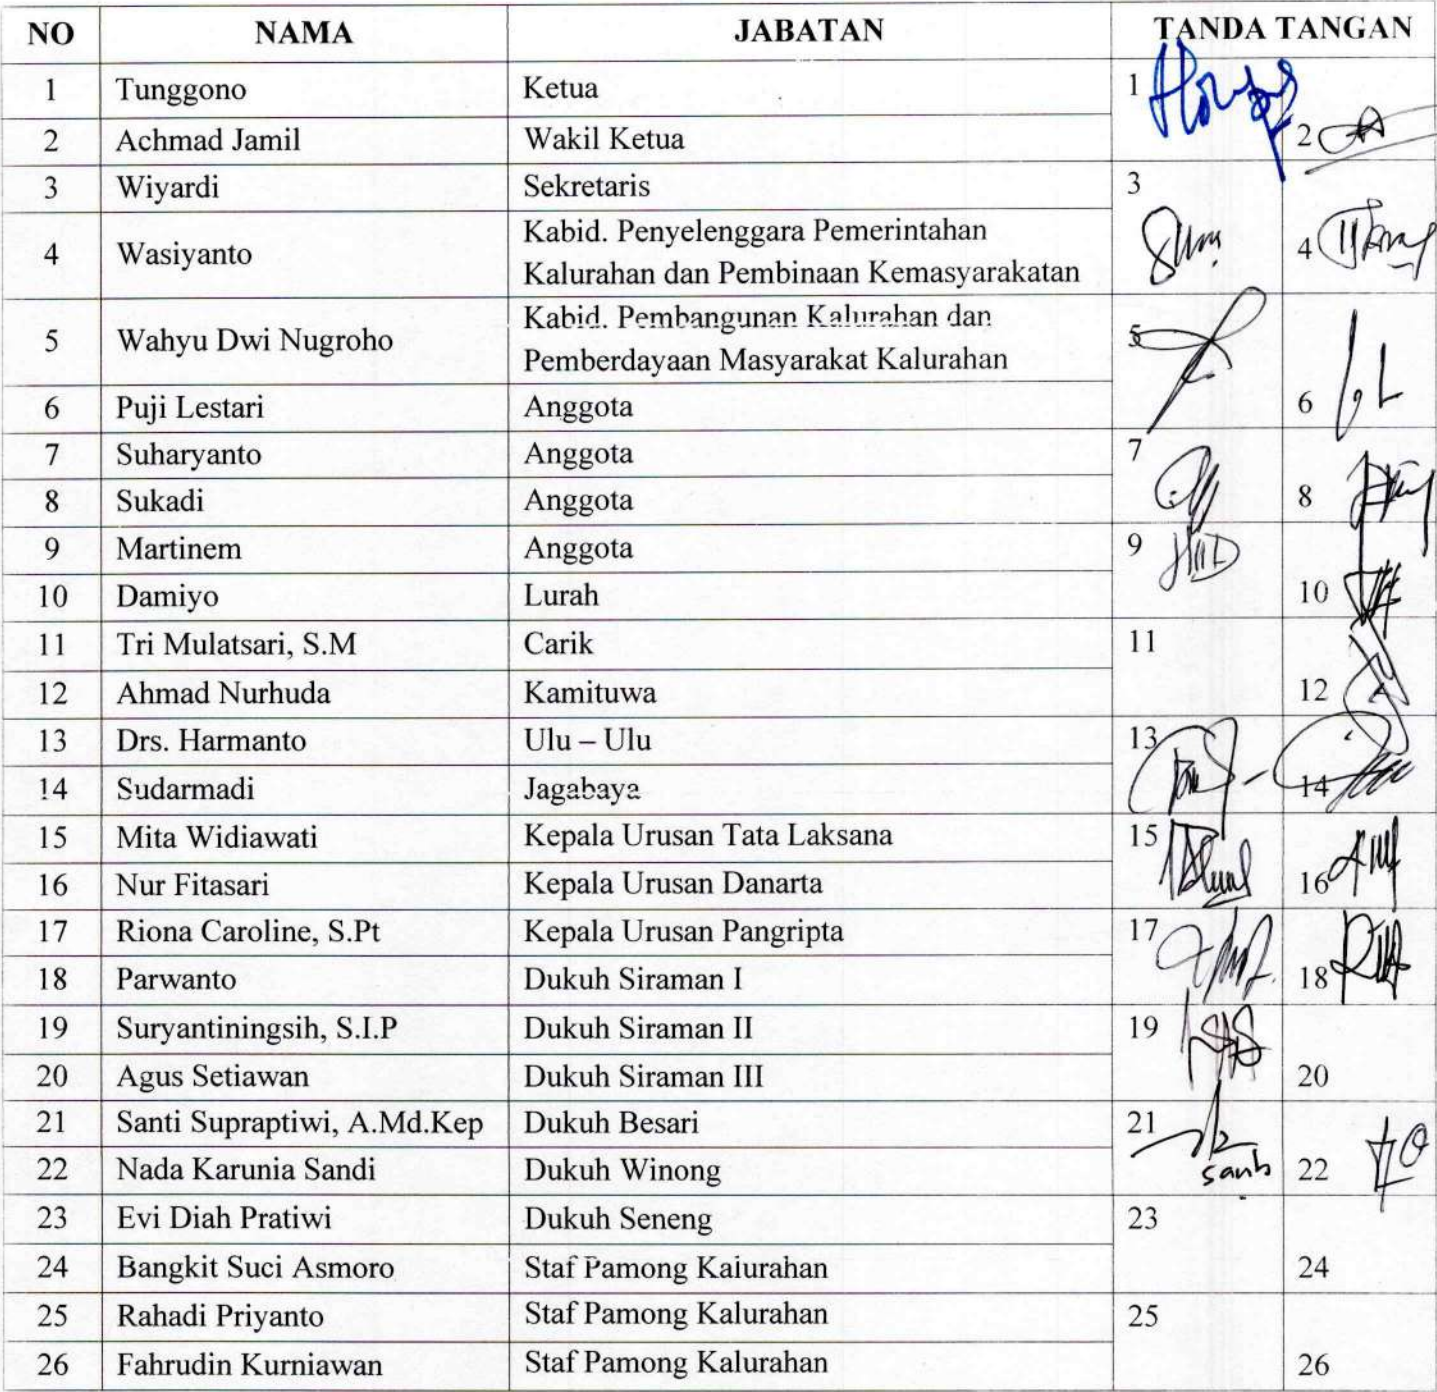 NO NAMA JABATAN TANDA TANGAN
1 Tunggono Ketua 1
2 Achmad Jamil Wakil Ketua 2
3 Wiyardi Sekretaris 3
4 Wasiyanto Kabid. Penyelenggara Pemerintahan 4
Kalurahan dan Pembinaan Kemasyarakatan
5 Wahyu Dwi Nugroho Kabid. Pembangunan Kalurahan dan 5
Pemberdayaan Masyarakat Kalurahan
6 Puji Lestari Anggota 6
7 Suharyanto Anggota 7
8 Sukadi Anggota 8
9 Martinem Anggota 9
10 Damiyo Lurah 10
11 Tri Mulatsari, S.M Carik 11
12 Ahmad Nurhuda Kamituwa 12
13 Drs. Harmanto Ulu – Ulu 13
14 Sudarmadi Jagabaya 14
15 Mita Widiawati Kepala Urusan Tata Laksana 15
16 Nur Fitasari Kepala Urusan Danarta 16
17 Riona Caroline, S.Pt Kepala Urusan Pangripta 17
18 Parwanto Dukuh Siraman I 18
19 Suryantiningsih, S.I.P Dukuh Siraman II 19
20 Agus Setiawan Dukuh Siraman III 20
21 Santi Supraptiwi, A.Md.Kep Dukuh Besari 21
22 Nada Karunia Sandi Dukuh Winong 22
23 Evi Diah Pratiwi Dukuh Seneng 23
24 Bangkit Suci Asmoro Staf Pamong Kalurahan 24
25 Rahadi Priyanto Staf Pamong Kalurahan 25
26 Fahrudin Kurniawan Staf Pamong Kalurahan 26